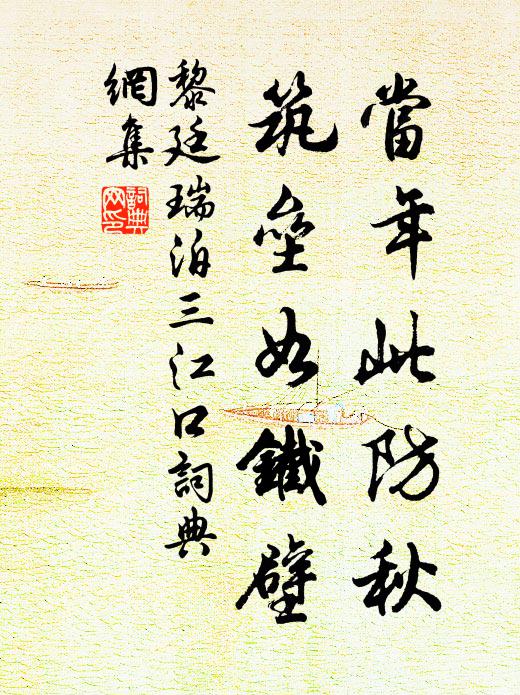 當年此防秋
筑壘如鐵壁
黎廷瑞泊三江口詞典
網集
詞典
网印